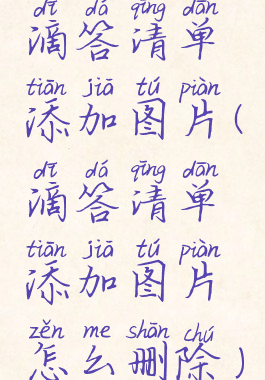 dī dá qīng dān
滴答清单
tiān jiā tú piàn
添加图片(
dī dá qīng dān
滴答清单
tiān jiā tú piàn
添加图片
zěn me shān chú
怎么删除)